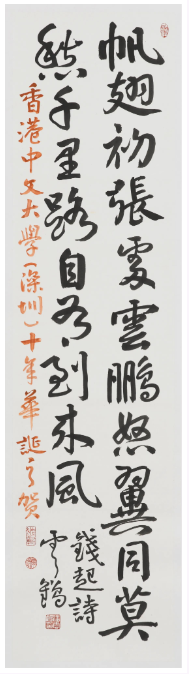 帆翅初張處雲鵬怒翼同莫
愁千里路自有到来風
錢起詩
香港中文大學(深圳)十年華誕之賀